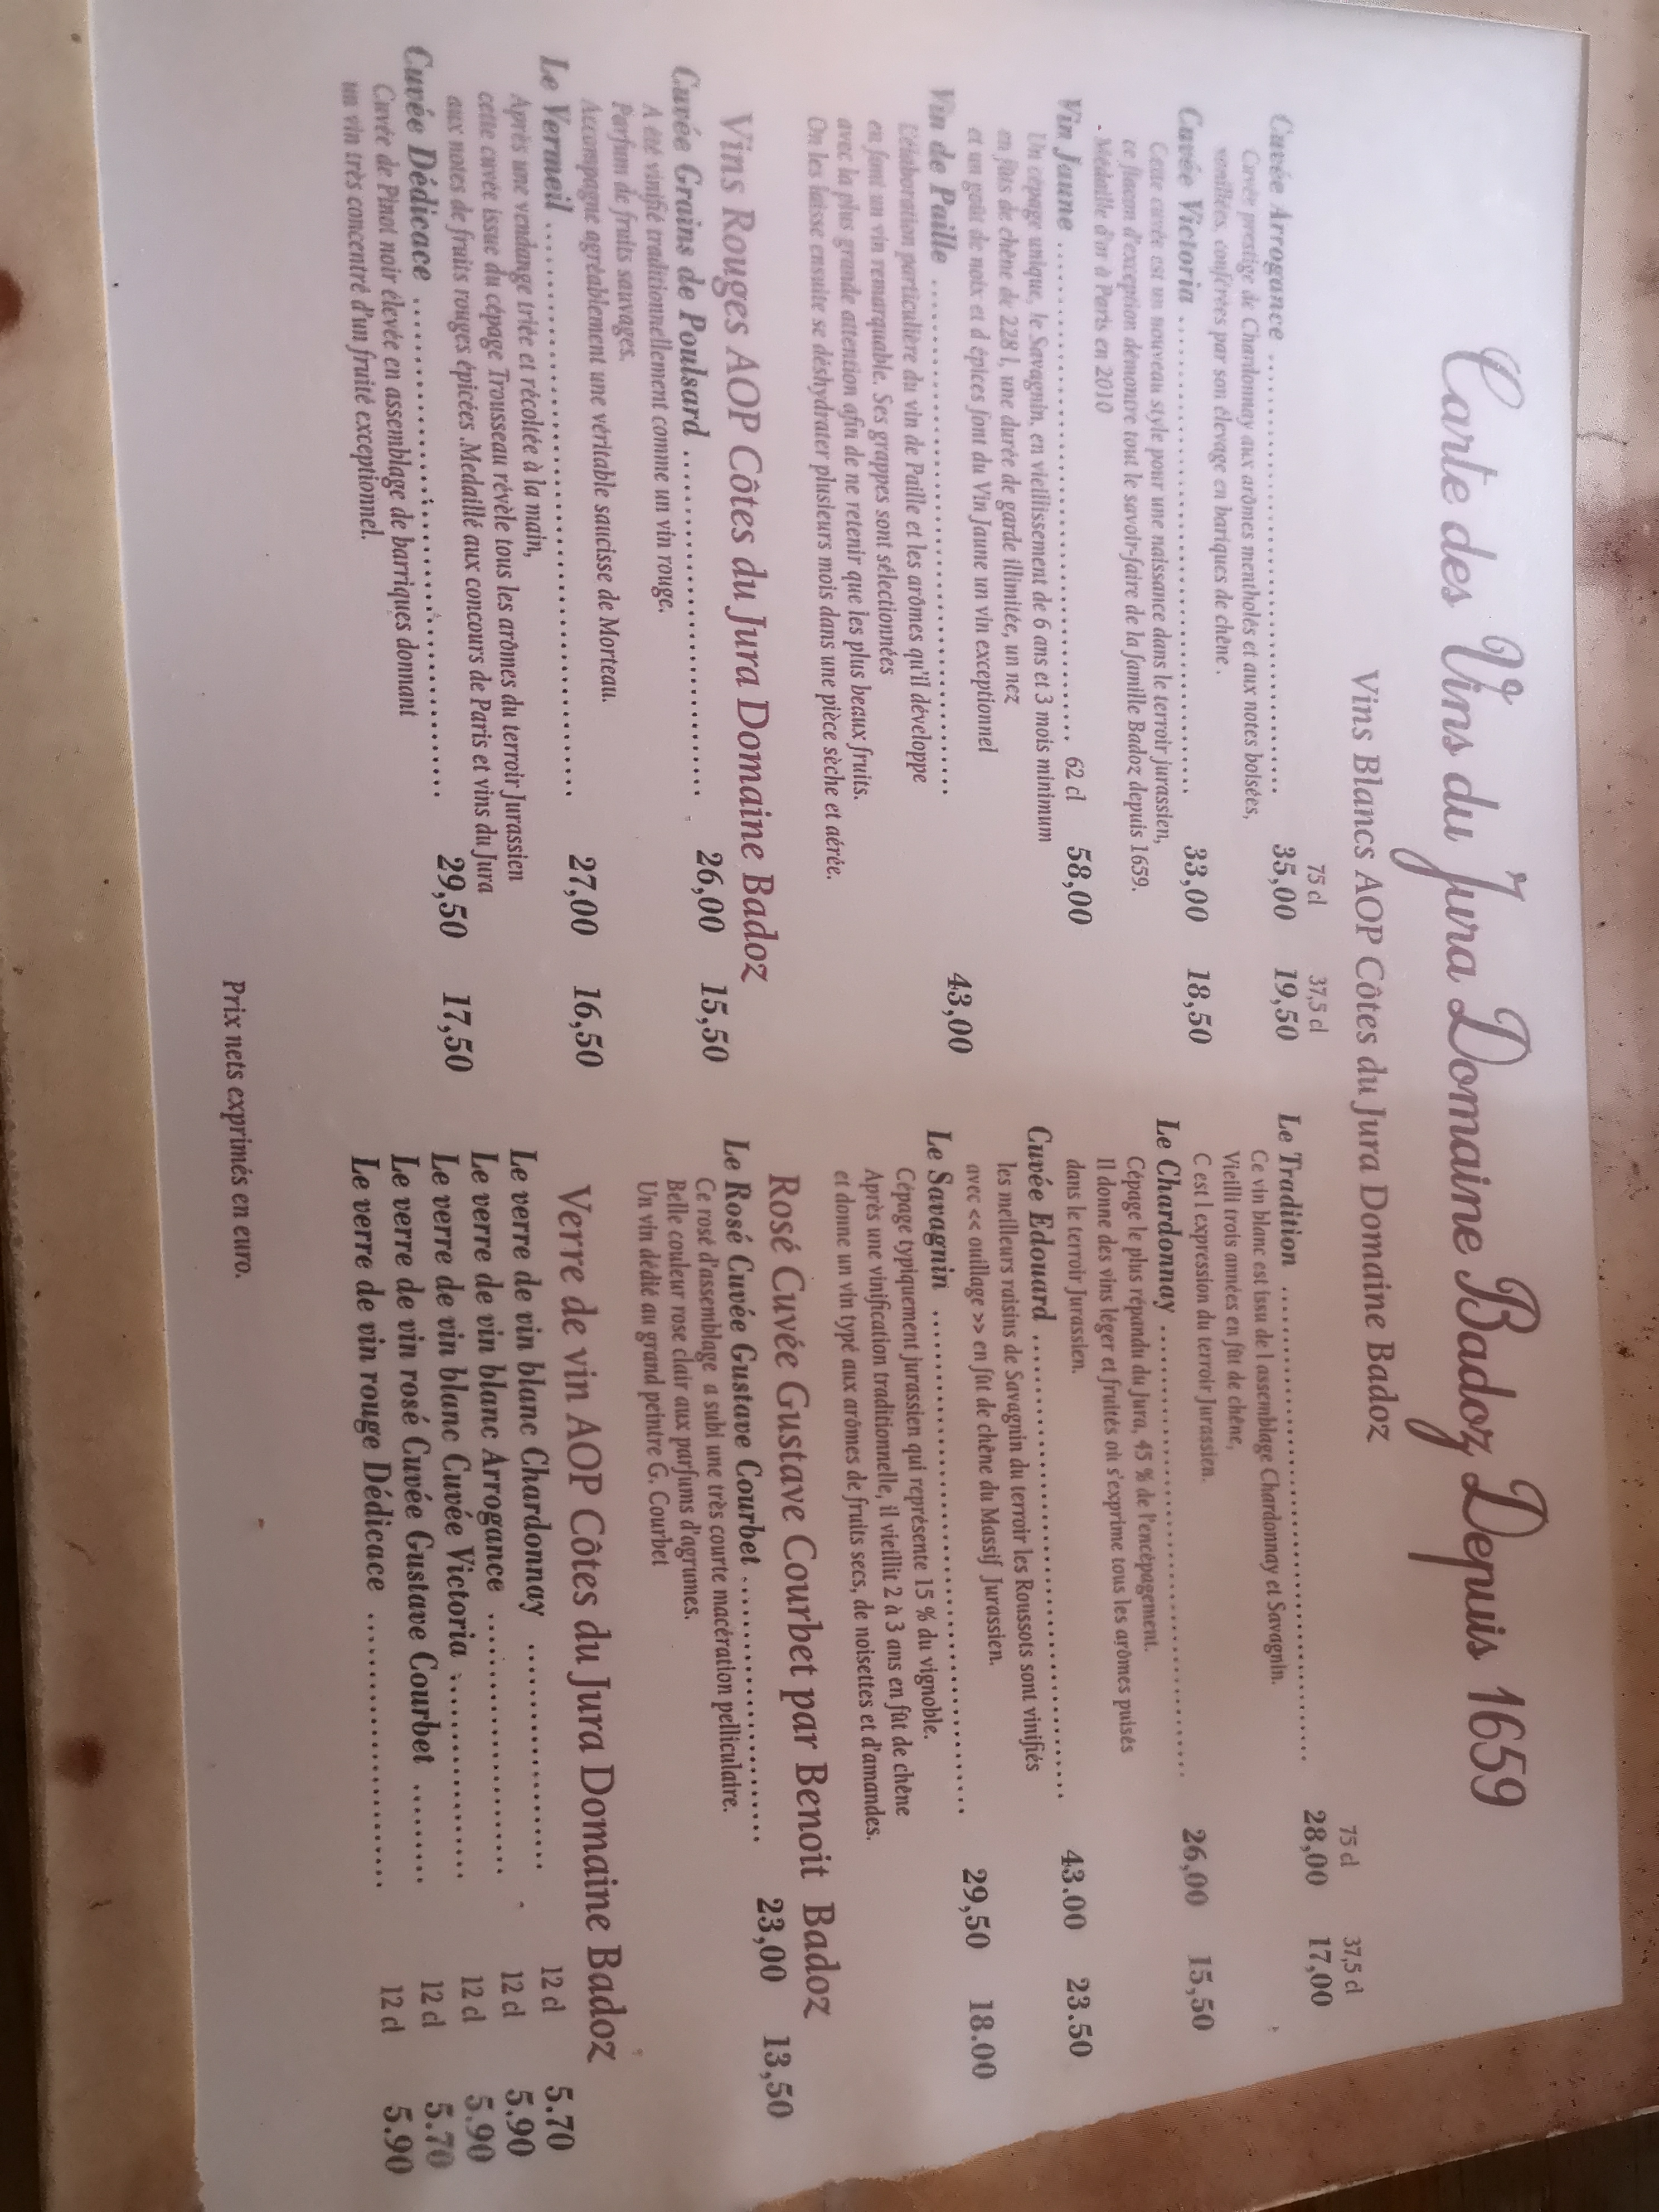 Carte des Vins du Jura Domaine Badoz Depuis 1659
Vins Blancs AOP Côtes du Jura Domaine Badoz
75 cl 37,5 cl
Cuvée Arrogance 35,00 19,50
Cuvée prestige de Chardonnay aux arômes mentholés et aux notes boisées,
vanillées, conférées par son élevage en bariques de chêne .
Cuvée Victoria 33,00 18,50
Cette cuvée est un nouveau style pour une naissance dans le terroir jurassien,
ce flacon d'exception démontre tout le savoir-faire de la famille Badoz depuis 1659.
. Médaille d'or à Paris en 2010
Vin Jaune 62 cl 58,00
Un cépage unique, le Savagnin, en vieillissement de 6 ans et 3 mois minimum
en fûts de chêne de 228 l, une durée de garde illimitée, un nez
et un goût de noix et d épices font du Vin Jaune un vin exceptionnel
Vin de Paille 43,00
L'élaboration particulière du vin de Paille et les arômes qu'il développe
en font un vin remarquable. Ses grappes sont sélectionnées
avec la plus grande attention afin de ne retenir que les plus beaux fruits.
On les laisse ensuite se déshydrater plusieurs mois dans une pièce sèche et aérée.
Vins Rouges AOP Côtes du Jura Domaine Badoz
Cuvée Grains de Poulsard 26,00 15,50
A été vinifié traditionnellement comme un vin rouge.
Parfum de fruits sauvages.
Accompagne agréablement une véritable saucisse de Morteau.
Le Vermeil 27,00 16,50
Après une vendange triée et récoltée à la main,
cette cuvée issue du cépage Trousseau révèle tous les arômes du terroir Jurassien
aux notes de fruits rouges épicées .Medaillé aux concours de Paris et vins du Jura
Cuvée Dédicace 29,50 17,50
Cuvée de Pinot noir élevée en assemblage de barriques donnant
un vin très concentré d'un fruité exceptionnel.
75 cl 37,5 cl
Le Tradition 28,00 17,00
Ce vin blanc est issu de l assemblage Chardonnay et Savagnin.
Vieilli trois années en fût de chêne,
C est l expression du terroir Jurassien.
Le Chardonnay 26,00 15,50
Cépage le plus répandu du Jura, 45 % de l'encépagement.
Il donne des vins léger et fruités où s'exprime tous les arômes puisés
dans le terroir Jurassien.
Cuvée Edouard 43.00 23.50
les meilleurs raisins de Savagnin du terroir les Roussots sont vinifiés
avec << ouillage >> en fût de chêne du Massif Jurassien.
Le Savagnin 29,50 18.00
Cépage typiquement jurassien qui représente 15 % du vignoble.
Après une vinification traditionnelle, il vieillit 2 à 3 ans en fût de chêne
et donne un vin typé aux arômes de fruits secs, de noisettes et d'amandes.
Rosé Cuvée Gustave Courbet par Benoit Badoz
Le Rosé Cuvée Gustave Courbet 23,00 13,50
Ce rosé d'assemblage a subi une très courte macération pelliculaire.
Belle couleur rose clair aux parfums d'agrumes.
Un vin dédié au grand peintre G. Courbet
Verre de vin AOP Côtes du Jura Domaine Badoz
Le verre de vin blanc Chardonnay 12 cl 5.70
Le verre de vin blanc Arrogance 12 cl 5.90
Le verre de vin blanc Cuvée Victoria 12 cl 5.90
Le verre de vin rosé Cuvée Gustave Courbet 12 cl 5.70
Le verre de vin rouge Dédicace 12 cl 5.90
Prix nets exprimés en euro.